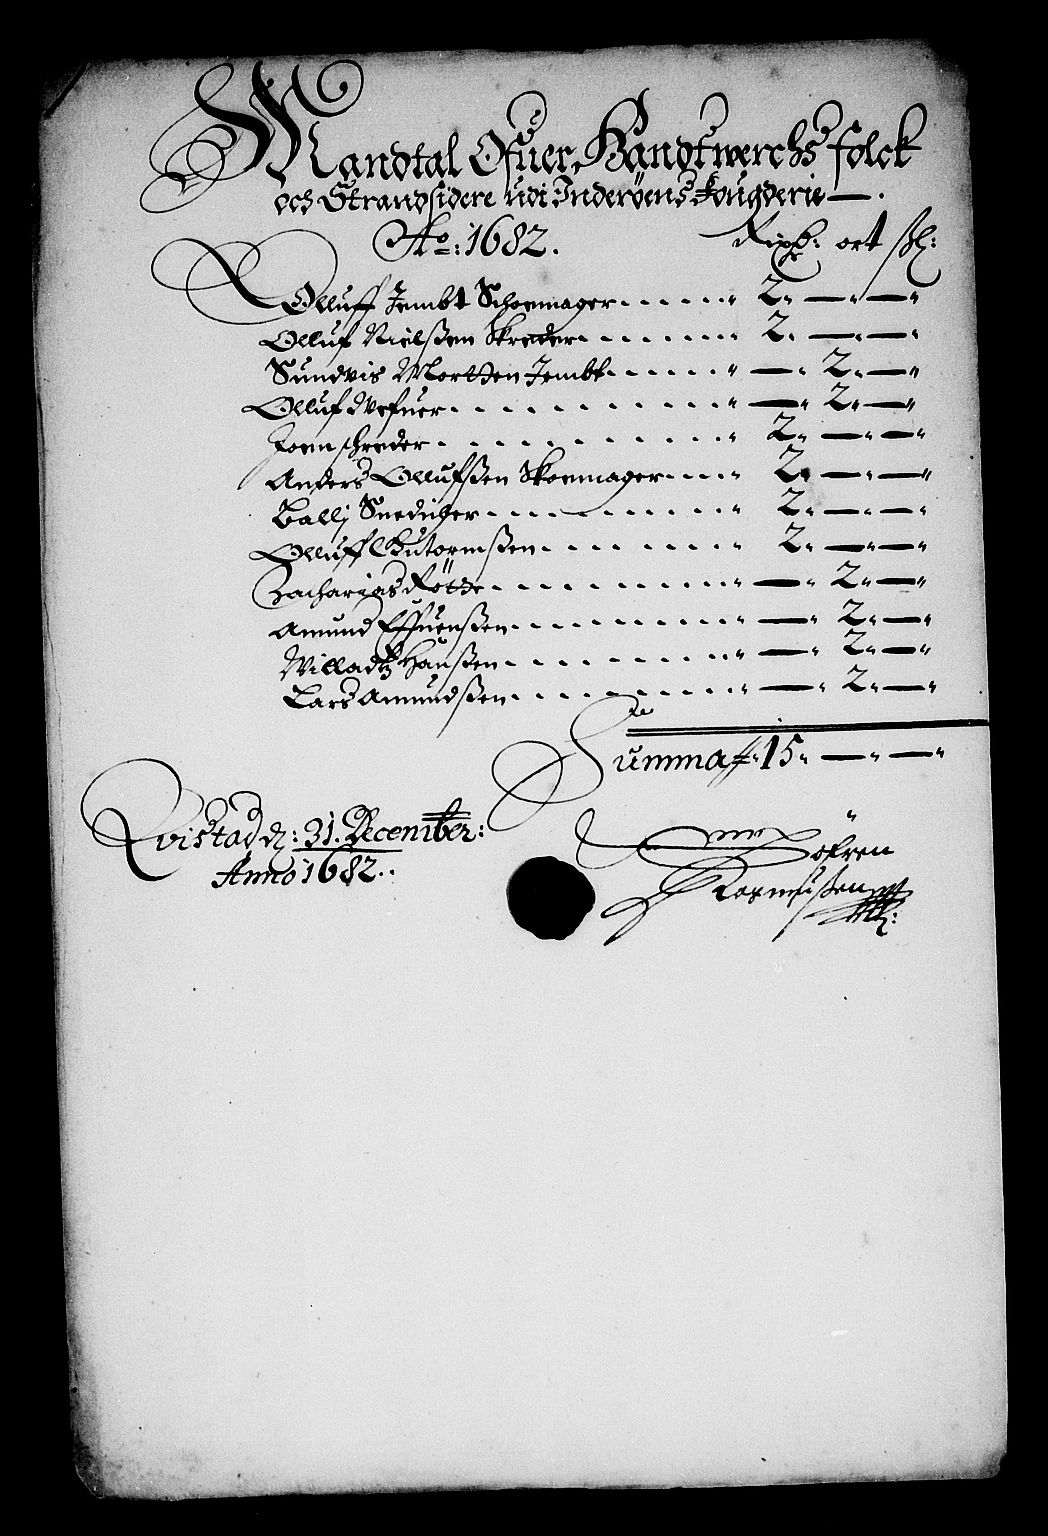 Mandtal Ofuer, Handtwerchs folck
och Strandsidere udi Inderöens fougderie —.
Ao: 1682. Rixd: ort ß:
Olluff Jembt Schoemager . . . . . . 2. — —
Olluf Nielßen Skreder . . . . . . . 2. — —
Sundvis Mortten Jembt . . . . . . — 2. —
Olluf Wefuer . . . . . . . . . . . — 2. —
Joen schreder . . . . . . . . . . . 2. — —
Anders Ollufßen Skoemager . . . . 2. — —
Ballj Snediger . . . . . . . . . . 2. — —
Olluff Gutormßen . . . . . . . . . 2. — —
Zacharias Rötte . . . . . . . . . . — 2. —
Amund Effuenßen . . . . . . . . . — 2. —
Willadtz Hanßen . . . . . . . . . — 2. —
Lars Amundßen . . . . . . . . . . — 2. —
Summa 15. — —
Qvistad d: 31. December:
Anno 1682.
Söfren
Rasmußen